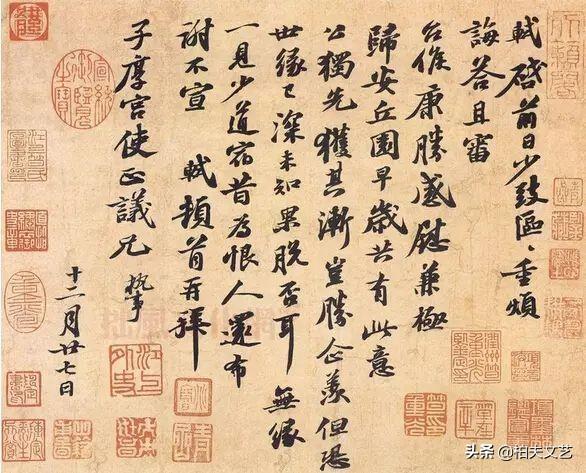 軾啓前日少致區〻重煩
誨答且審
台候康勝感慰兼極
歸安丘園早歲共有此意
公獨先獲其漸豈勝企羨但恐
世緣已深未知果脫否耳無緣
一見少道宿昔為恨人還布
謝不宣 軾頓首再拜
子厚宮使正議兄 執事
十二月廿七日
乾隆御覽之寶
头条 @柏夫文艺